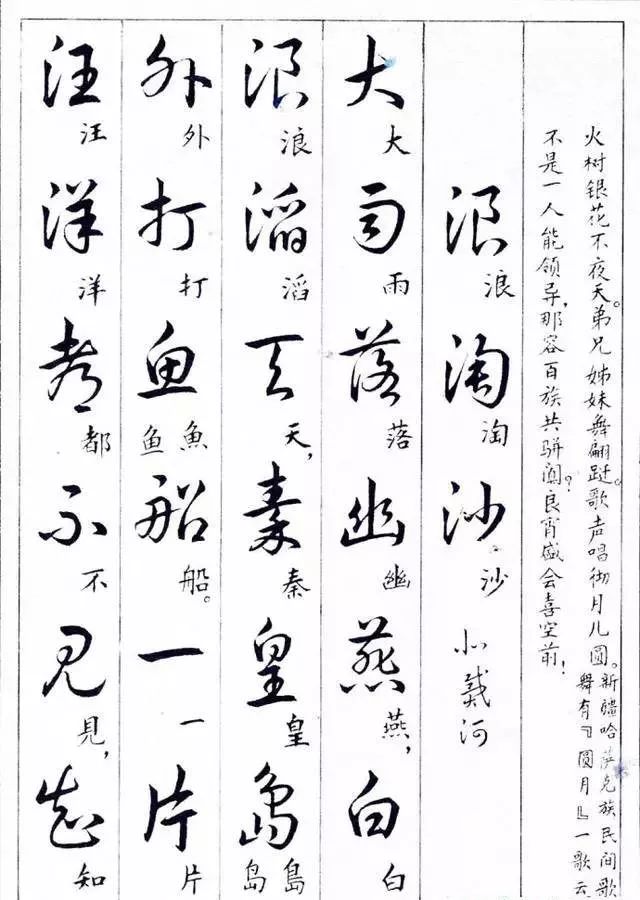 火树银花不夜天。弟兄姊妹舞翩跹。歌声唱彻月儿圆。
新疆哈萨克族民间歌
舞有『圆月』一歌云
不是一人能领导，那容百族共骈阗？良宵盛会喜空前！
浪淘沙北戴河
浪淘沙
大雨落幽燕白
大雨落幽燕，白
浪滔天秦皇岛
浪滔天，秦皇岛島
外打鱼船一片
外打鱼魚船。一片
汪洋都不见知
汪洋都不見，知